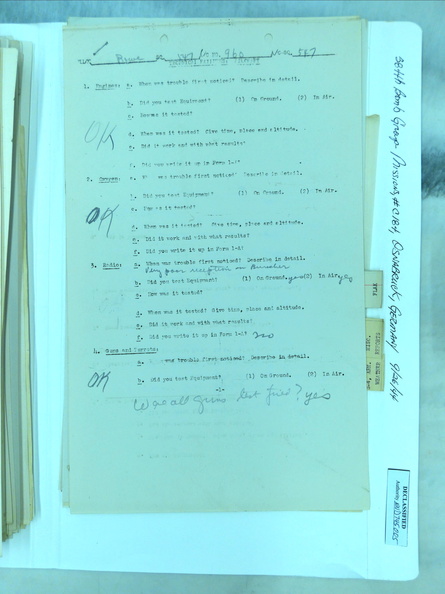 1. Engines: a. When was trouble first noticed? Describe in detail.
b. Did you test Equipment? (1) On Ground. (2) In Air.
c. How was it tested?
OK
d. When was it tested? Give time, place and altitude.
e. Did it work and with what results?
f. Did you write it up in Form 1-A?
2. Oxygen: a. was trouble first noticed? Describe in detail.
b. Did you test Equipment? (1) On Ground. (2) In Air.
OK
c. How was it tested?
d. When was it tested? Give time, place and altitude.
e. Did it work and with what results?
f. Did you write it up in Form 1-A?
3. Radio: a. When was trouble first noticed? Describe in detail.
Very poor reception on
b. Did you test Equipment? (1) On Ground. yes (2) In Air. yes
c. How was it tested?
d. When was it tested? Give time, place and altitude.
e. Did it work and with what results?
f. Did you write it up in Form 1-A? yes
4. Guns and Turrets:
a. was trouble first noticed? Describe in detail.
OK
b. Did you test Equipment? (1) On Ground. (2) In Air.
-1-
Was all guns test fired? yes
Bomb Group, Mission, Osnabruck, Germany 9/26/44
DECLASSIFIED
Authority